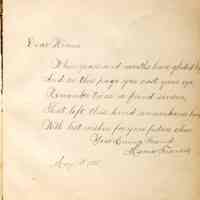 Dear
When years and months have glided by
And on this page you cast your eye
Remember 'twas a friend sincere
That left this kind remembrance here
With best wishes for your future
Your Loving Friend
Mamie
May